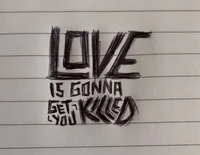 LOVE
IS GONNA
GET YOU KILLED